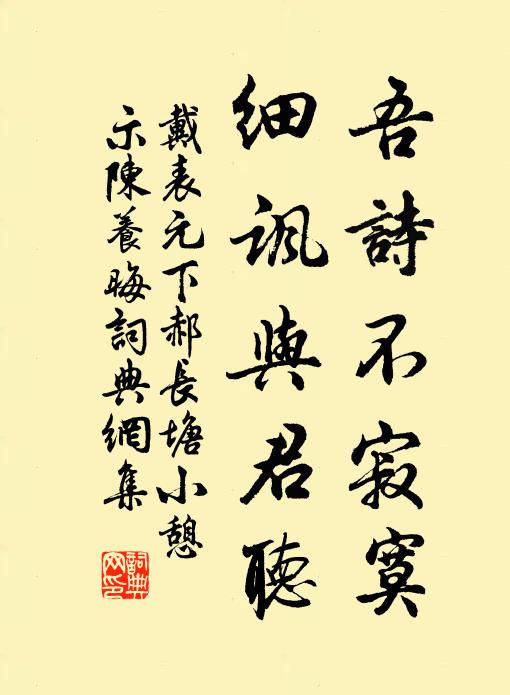 吾詩不寂寞
細諷與君聽
戴表元下郝長塘小憩
示陳養晦詞典網集
詞典网印